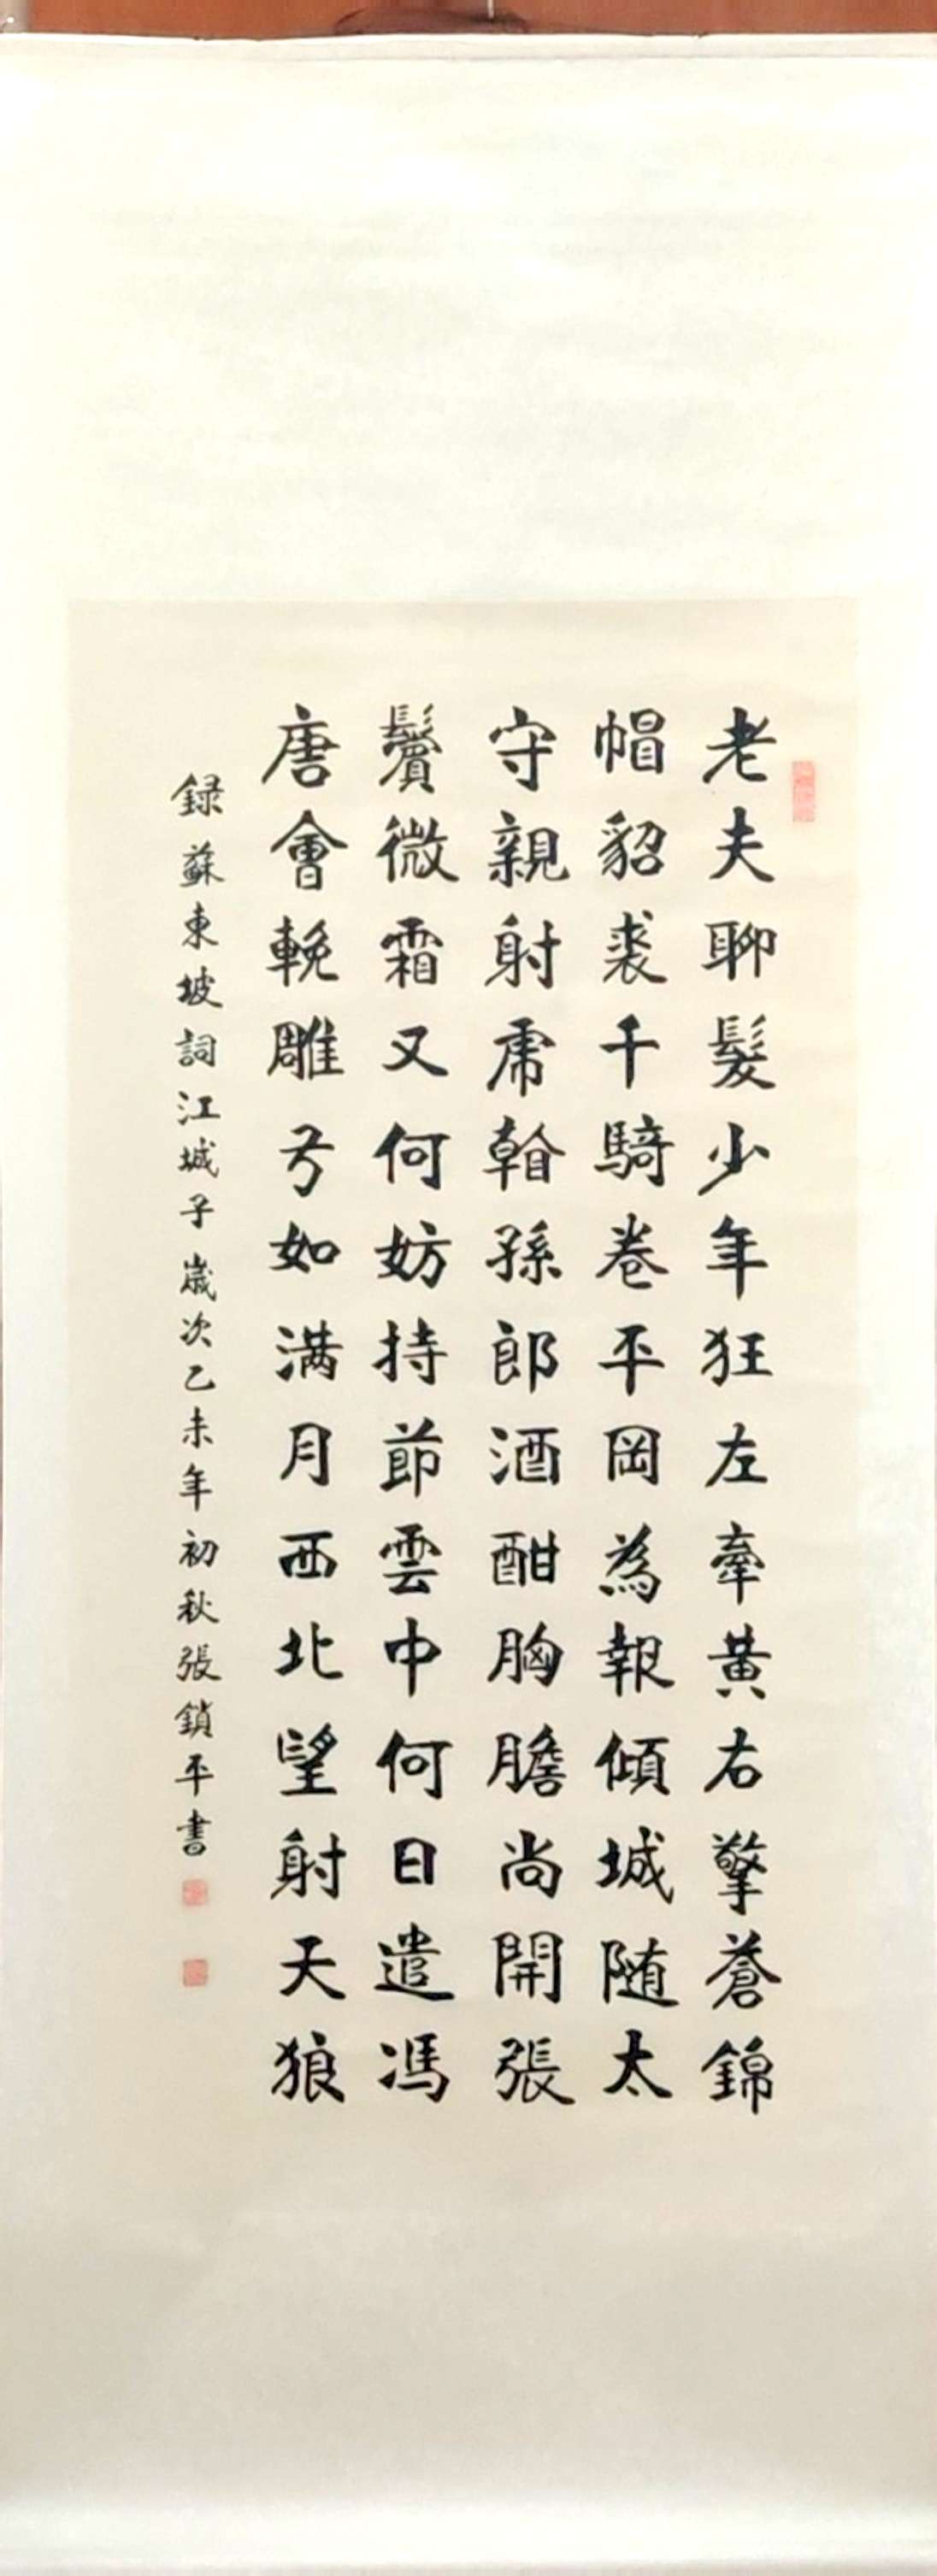 老夫聊髮少年狂左牽黃右擎蒼錦
帽貂裘千騎卷平岡為報傾城随太
守親射虎䀂孫郎酒酣胸膽尚開張
鬢微霜又何妨持節雲中何日遣馮
唐會輓雕弓如满月西北望射天狼
録蘇東坡詞江城子歲次乙未年初秋張鎖平書